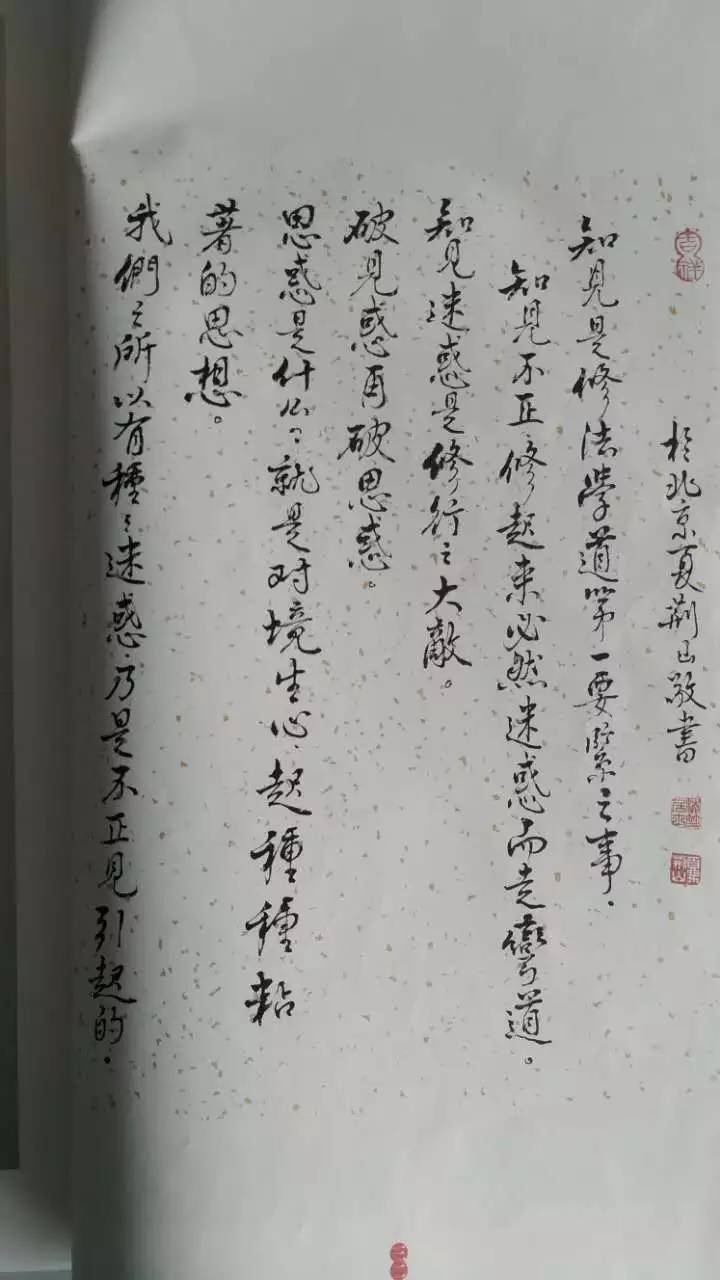 吉祥
於北京夏荊山敬書
知見是修法學道第一要緊之事、
知見不正、修起来必然迷惑而走彎道。
知見迷惑是修行之大敵。
破見惑再破思惑。
思惑是什么、就是对境生心、起種種粘
著的思想。
我們之所以有種々迷惑、乃是不正見引起的。